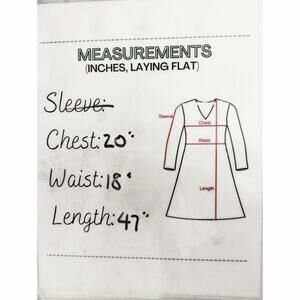 MEASUREMENTS
(INCHES, LAYING FLAT)
Sleeve:
Chest: 20"
Waist: 18"
Length: 47"
Sleeve
Chest
Waist
Length